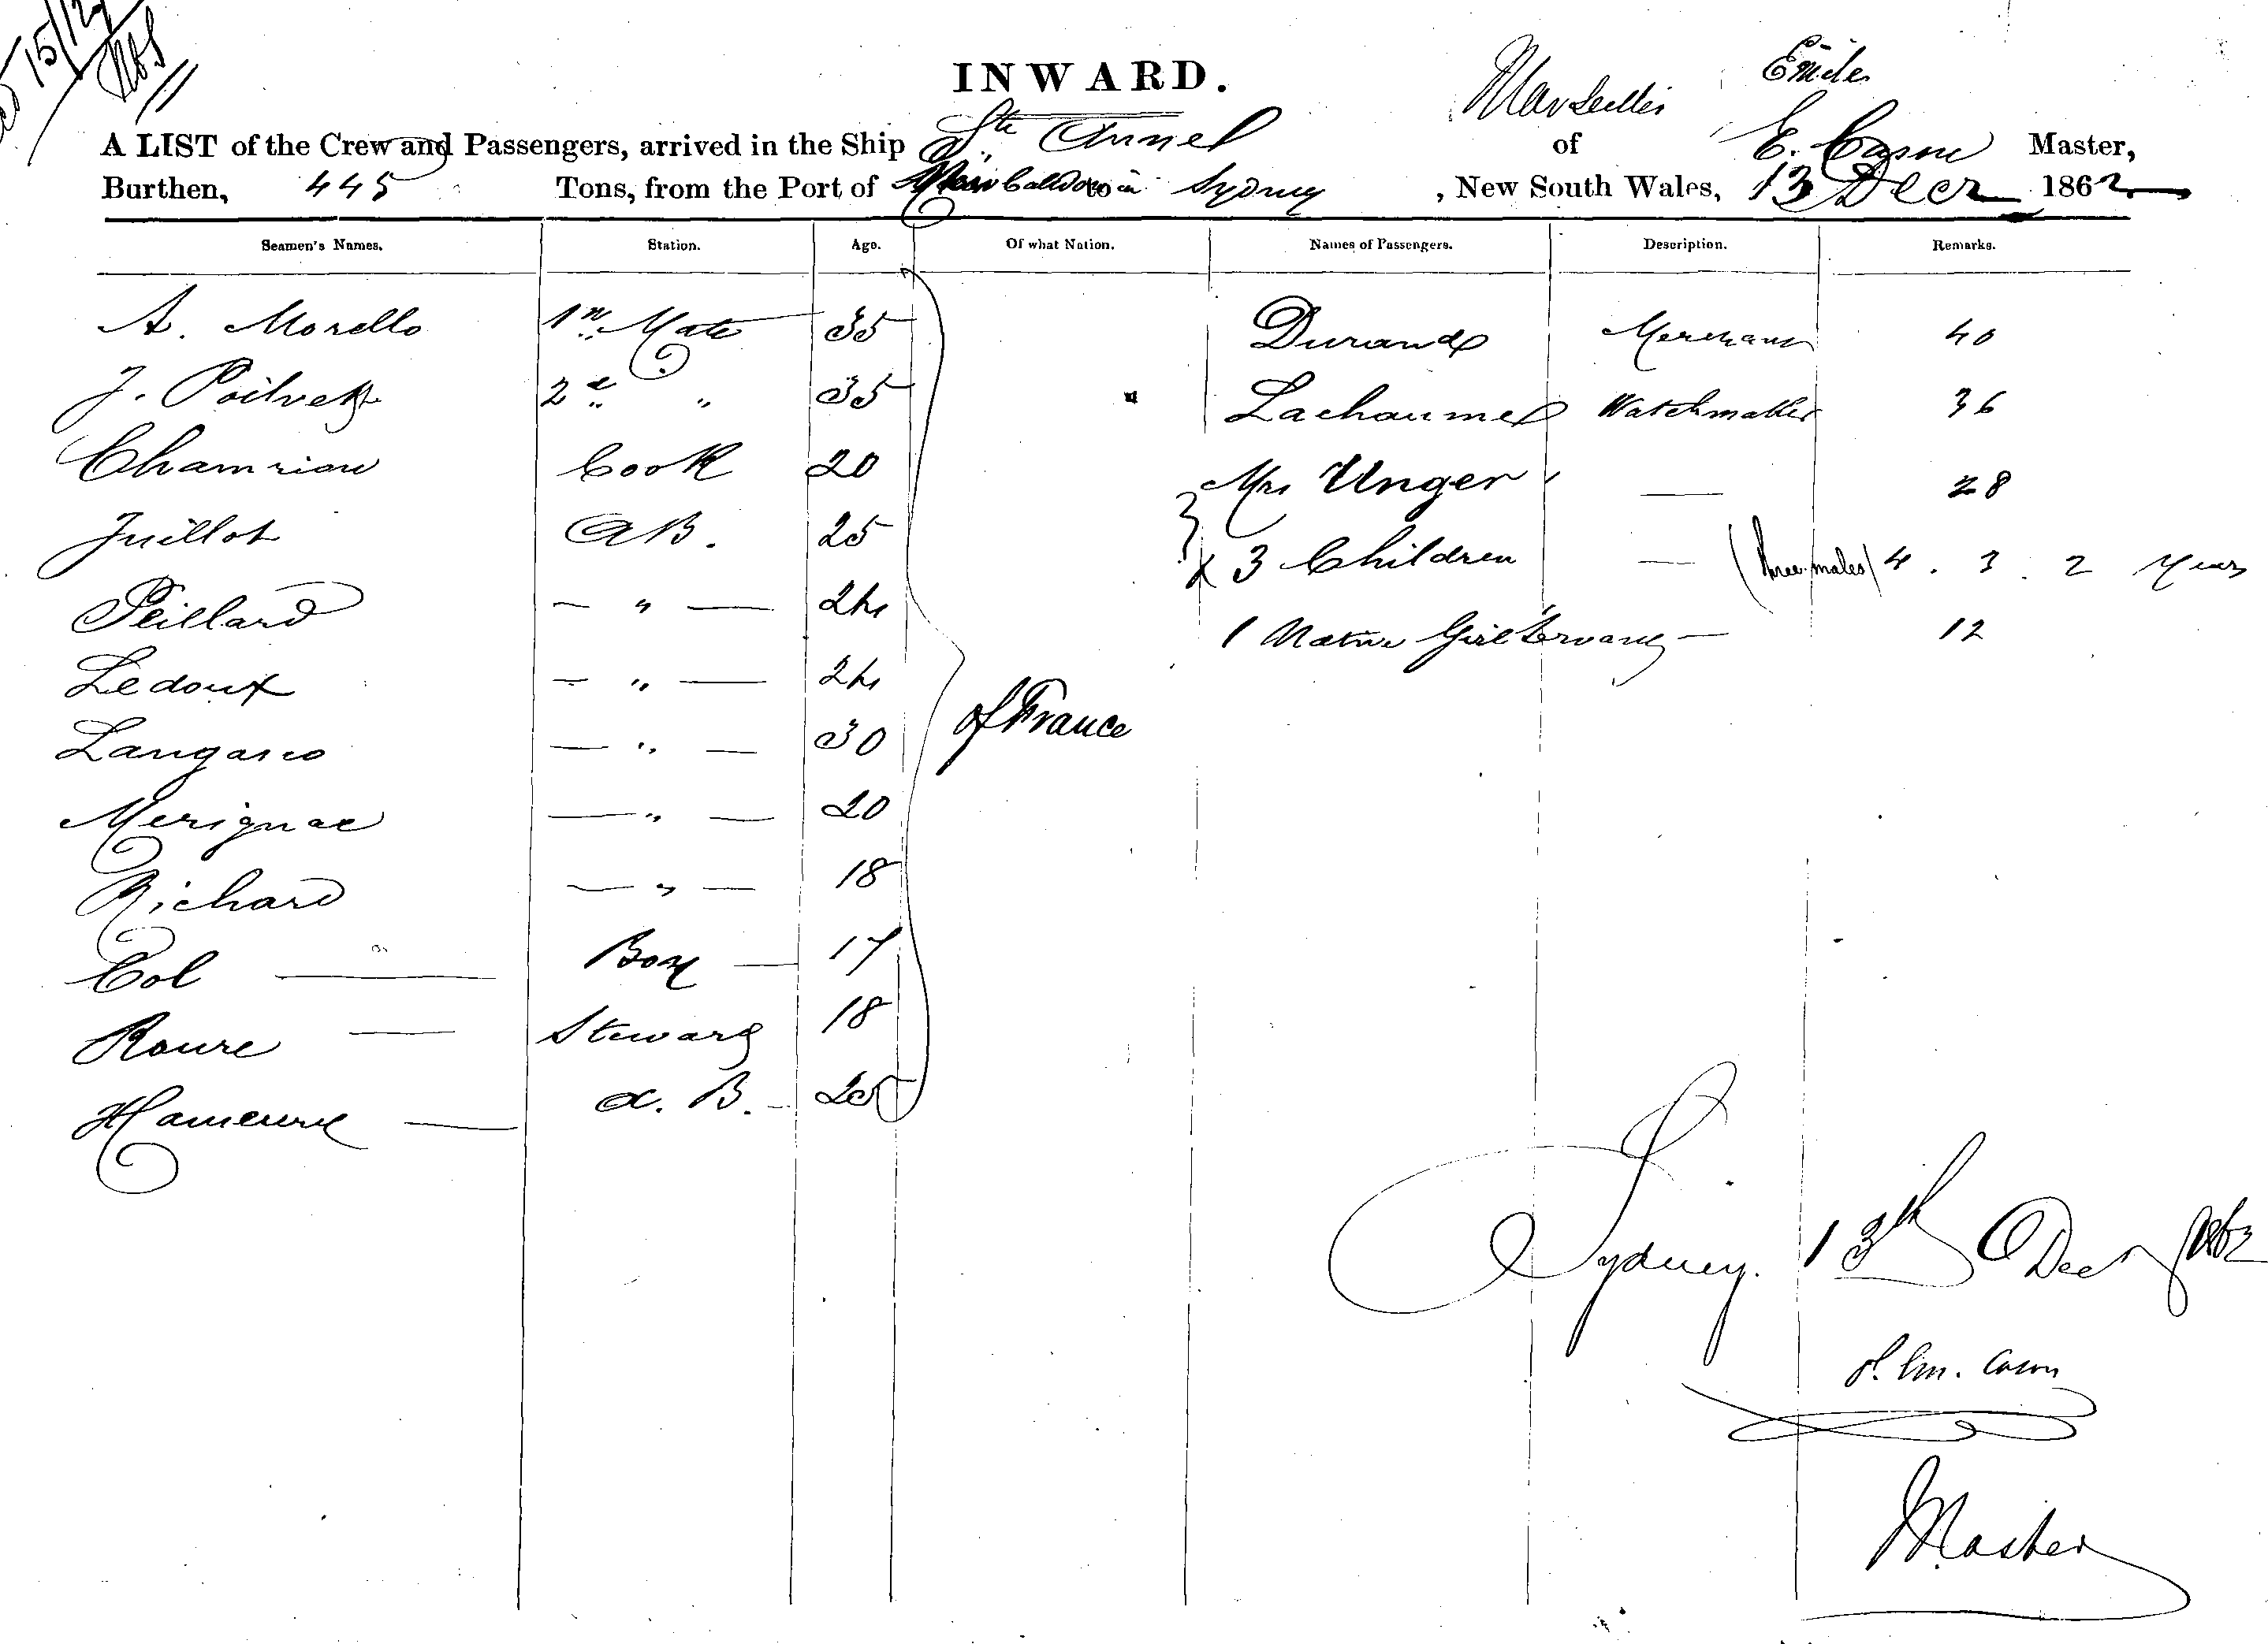 15/12
INWARD.
Marseilles Emile
A LIST of the Crew and Passengers, arrived in the Ship Ste Anne of E. Casou Master,
Burthen, 445 Tons, from the Port of New Caledonia to Sydney, New South Wales, 13 Decr 1862
Seamen's Names. Station. Age. Of what Nation. Names of Passengers. Description. Remarks.
A. Morello 1st Mate 35 Durand Merchant 40
J. Poilvet 2d " 35 Lachaume Watchmaker 36
Cook 20 Mrs Unger — 28
Juillot AB. 25 & 3 Children — (three males) 4. 3. 2 Years
Peillard — " — 24 1 Native Girl Servant — 12
Ledoux — " — 24
Langasco — " — 30 of France
Merignac — " — 20
Richard — " — 18
Col — Boy — 17
Roure — Steward 18
A. B. — 25
Sydney. 13th Decr 1862
Master